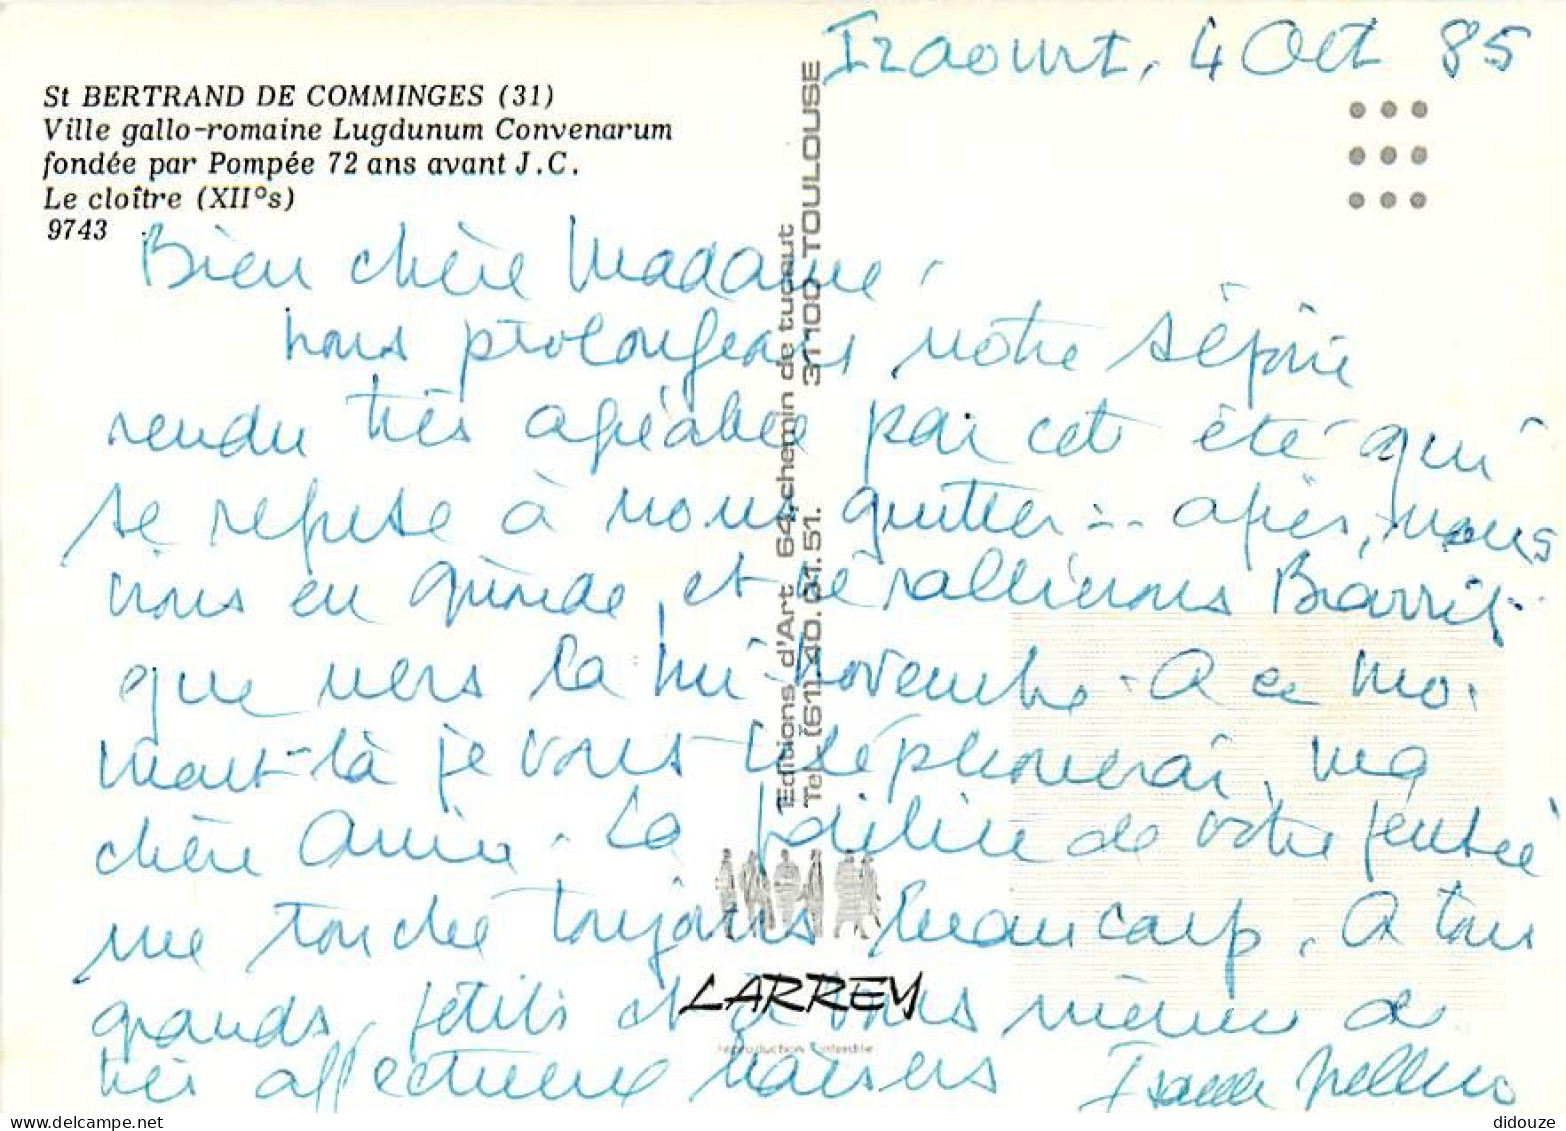 Izaourt, 4 Oct 85
St BERTRAND DE COMMINGES (31)
Ville gallo-romaine Lugdunum Convenarum
fondée par Pompée 72 ans avant J.C.
Le cloître (XII°s)
9743
Bien chère Madame,
nous prolongeons notre séjour
rendu très agréable par cet été qui
se refuse à nous quitter... après, nous
irons en Gironde, et ne rallierons Biarritz
que vers la mi-novembre. A ce mo-
ment-là je vous téléphonerai, ma
chère Amie. La fidélité de votre pensée
me touche toujours beaucoup. A tous
grands, petits et à vous même de
très affectueux baisers
Editions d'Art 64, chemin de tucaut
Tel. (61) 40.61.51. 31100 TOULOUSE
LARREY
reproduction interdite
didouze